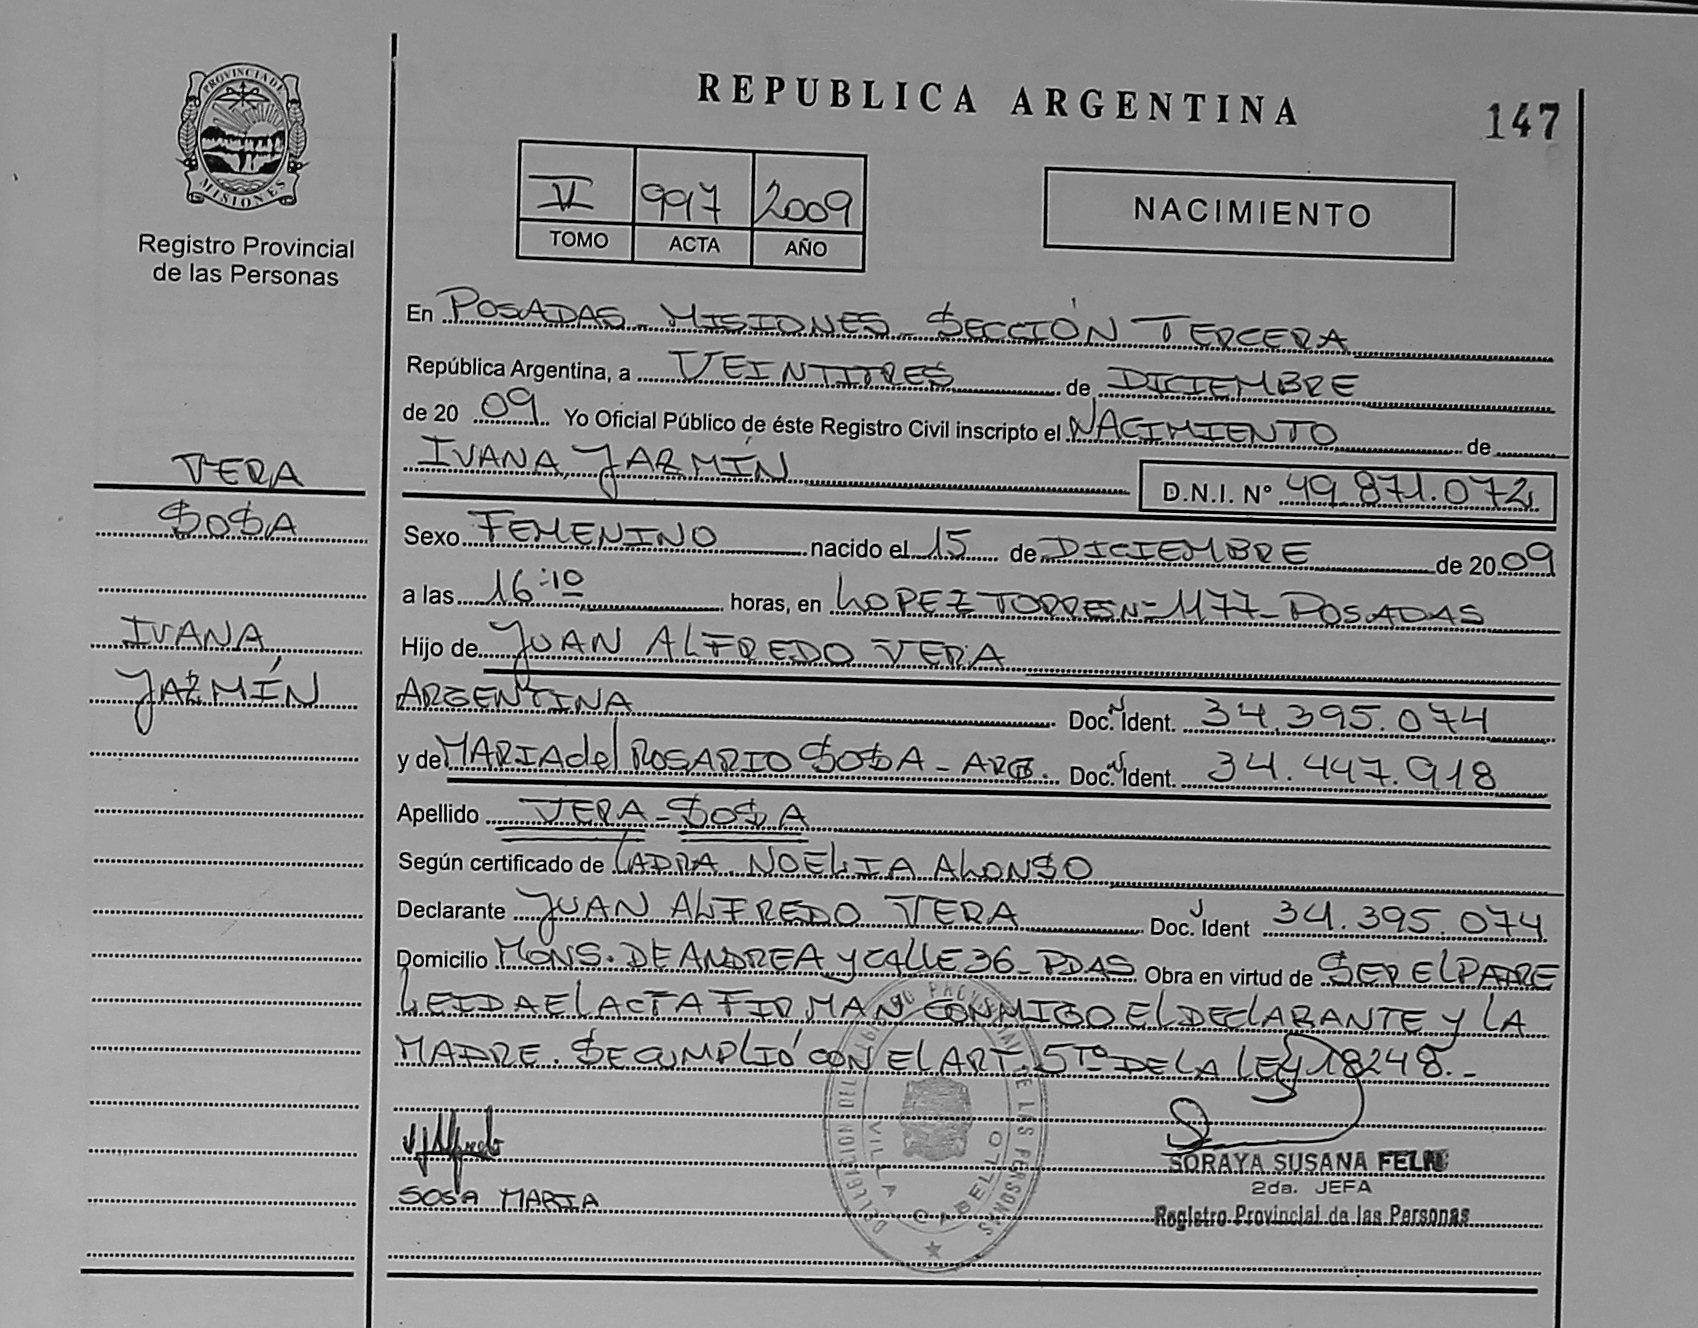 PROVINCIA DE
MISIONES
Registro Provincial
de las Personas
REPUBLICA ARGENTINA
147
VI 997 2009
TOMO ACTA AÑO
NACIMIENTO
En POSADAS - MISIONES - SECCIÓN TERCERA
República Argentina, a VEINTITRES de DICIEMBRE
de 20 09 Yo Oficial Público de éste Registro Civil inscripto el NACIMIENTO de
IVANA JAZMÍN D.N.I. N° 49.871.072
VERA
SOSA
IVANA
JAZMÍN
Sexo FEMENINO nacido el 15 de DICIEMBRE de 20 09
a las 16:10 horas, en LOPEZ TORRES N= 1177 - POSADAS
Hijo de JUAN ALFREDO VERA
ARGENTINA Doc. Ident. 34.395.074
y de MARIA del ROSARIO SOSA - ARG. Doc. Ident. 34.447.918
Apellido VERA - SOSA
Según certificado de LA DRA. NOELIA ALONSO
Declarante JUAN ALFREDO VERA Doc. Ident 34.395.074
Domicilio MONS. DE ANDREA y CALLE 36 - PDAS Obra en virtud de SER EL PADRE
LEIDA EL ACTA FIRMAN CONMIGO EL DECLARANTE Y LA
MADRE. SE CUMPLIÓ CON EL ART. 5TO DE LA LEY 18248. -
DELEGACION DEL REGISTRO PROVINCIAL DE LAS PERSONAS
VILLA CABELLO
SOSA MARIA
SORAYA SUSANA FELIU
2da. JEFA
Registro Provincial de las Personas